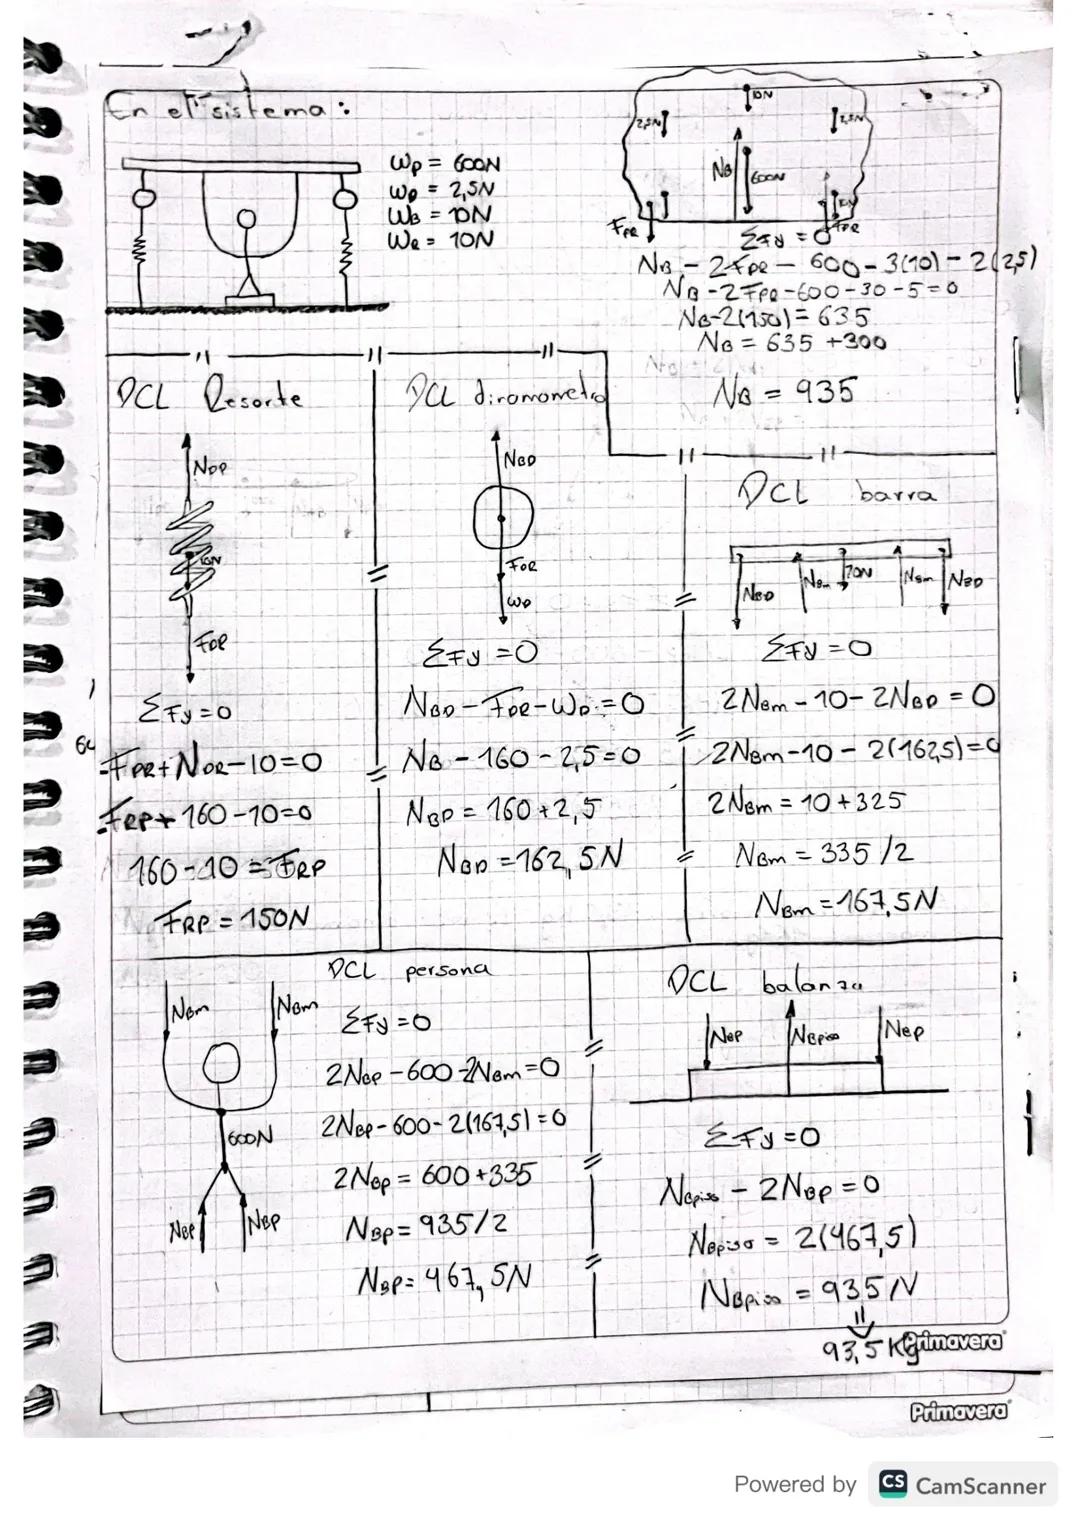 En el sistema:
Wp = 600N
WD = 2,5N
WB = 10N
WR = 10N
10N
2,5N
2,5N
NB
600N
10N
FPR
FPR
ΣFy = 0
NB - 2FPR - 600 - 3(10) - 2(2,5)
NB - 2FPR - 600 - 30 - 5 = 0
NB - 2(150) = 635
NB = 635 + 300
NB = 935
DCL Resorte
NDR
10N
FDR
ΣFy = 0
-FPR + NDR - 10 = 0
-FRP + 160 - 10 = 0
160 - 10 = FRP
FRP = 150N
DCL dinamometro
NBD
FDR
WD
ΣFy = 0
NBD - FDR - WD = 0
NB - 160 - 2,5 = 0
NBD = 160 + 2,5
NBD = 162,5N
DCL barra
NBD
NBm
10N
NBm
NBD
ΣFy = 0
2NBm - 10 - 2NBD = 0
2NBm - 10 - 2(162,5) = 0
2NBm = 10 + 325
NBm = 335/2
NBm = 167,5N
DCL persona
NBm
NBm
600N
NBP
NBP
ΣFy = 0
2NBP - 600 - 2NBm = 0
2NBP - 600 - 2(167,5) = 0
2NBP = 600 + 335
NBP = 935/2
NBP = 467,5N
DCL balanza
NBP
NBpiso
NBP
ΣFy = 0
NBpiso - 2NBP = 0
NBpiso = 2(467,5)
NBpiso = 935N
93,5 Kg
Primavera
Primavera
Powered by CS CamScanner